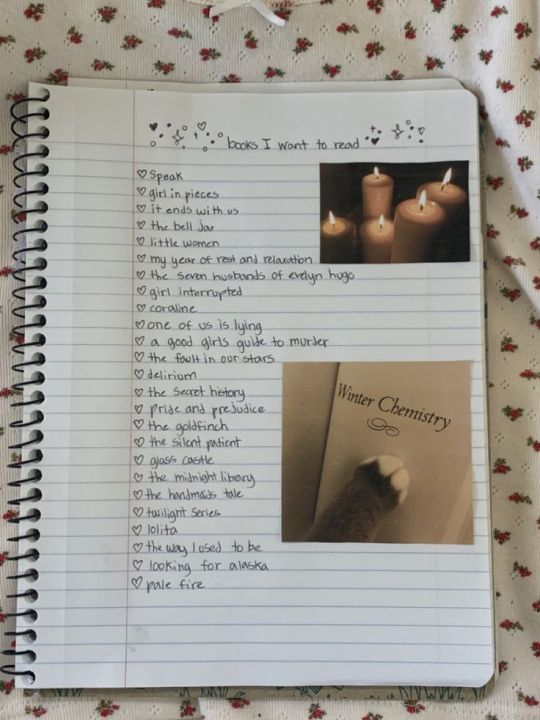 books I want to read
♡ Speak
♡ girl in pieces
♡ it ends with us
♡ the bell jar
♡ little women
♡ my year of rest and relaxation
♡ the seven husbands of evelyn hugo
♡ girl interrupted
♡ coraline
♡ one of us is lying
♡ a good girls guide to murder
♡ the fault in our stars
♡ delirium
♡ the secret history
♡ pride and prejudice
♡ the goldfinch
♡ the silent patient
♡ glass castle
♡ the midnight library
♡ the handmaids tale
♡ twilight series
♡ lolita
♡ the way I used to be
♡ looking for alaska
♡ pale fire
Winter Chemistry